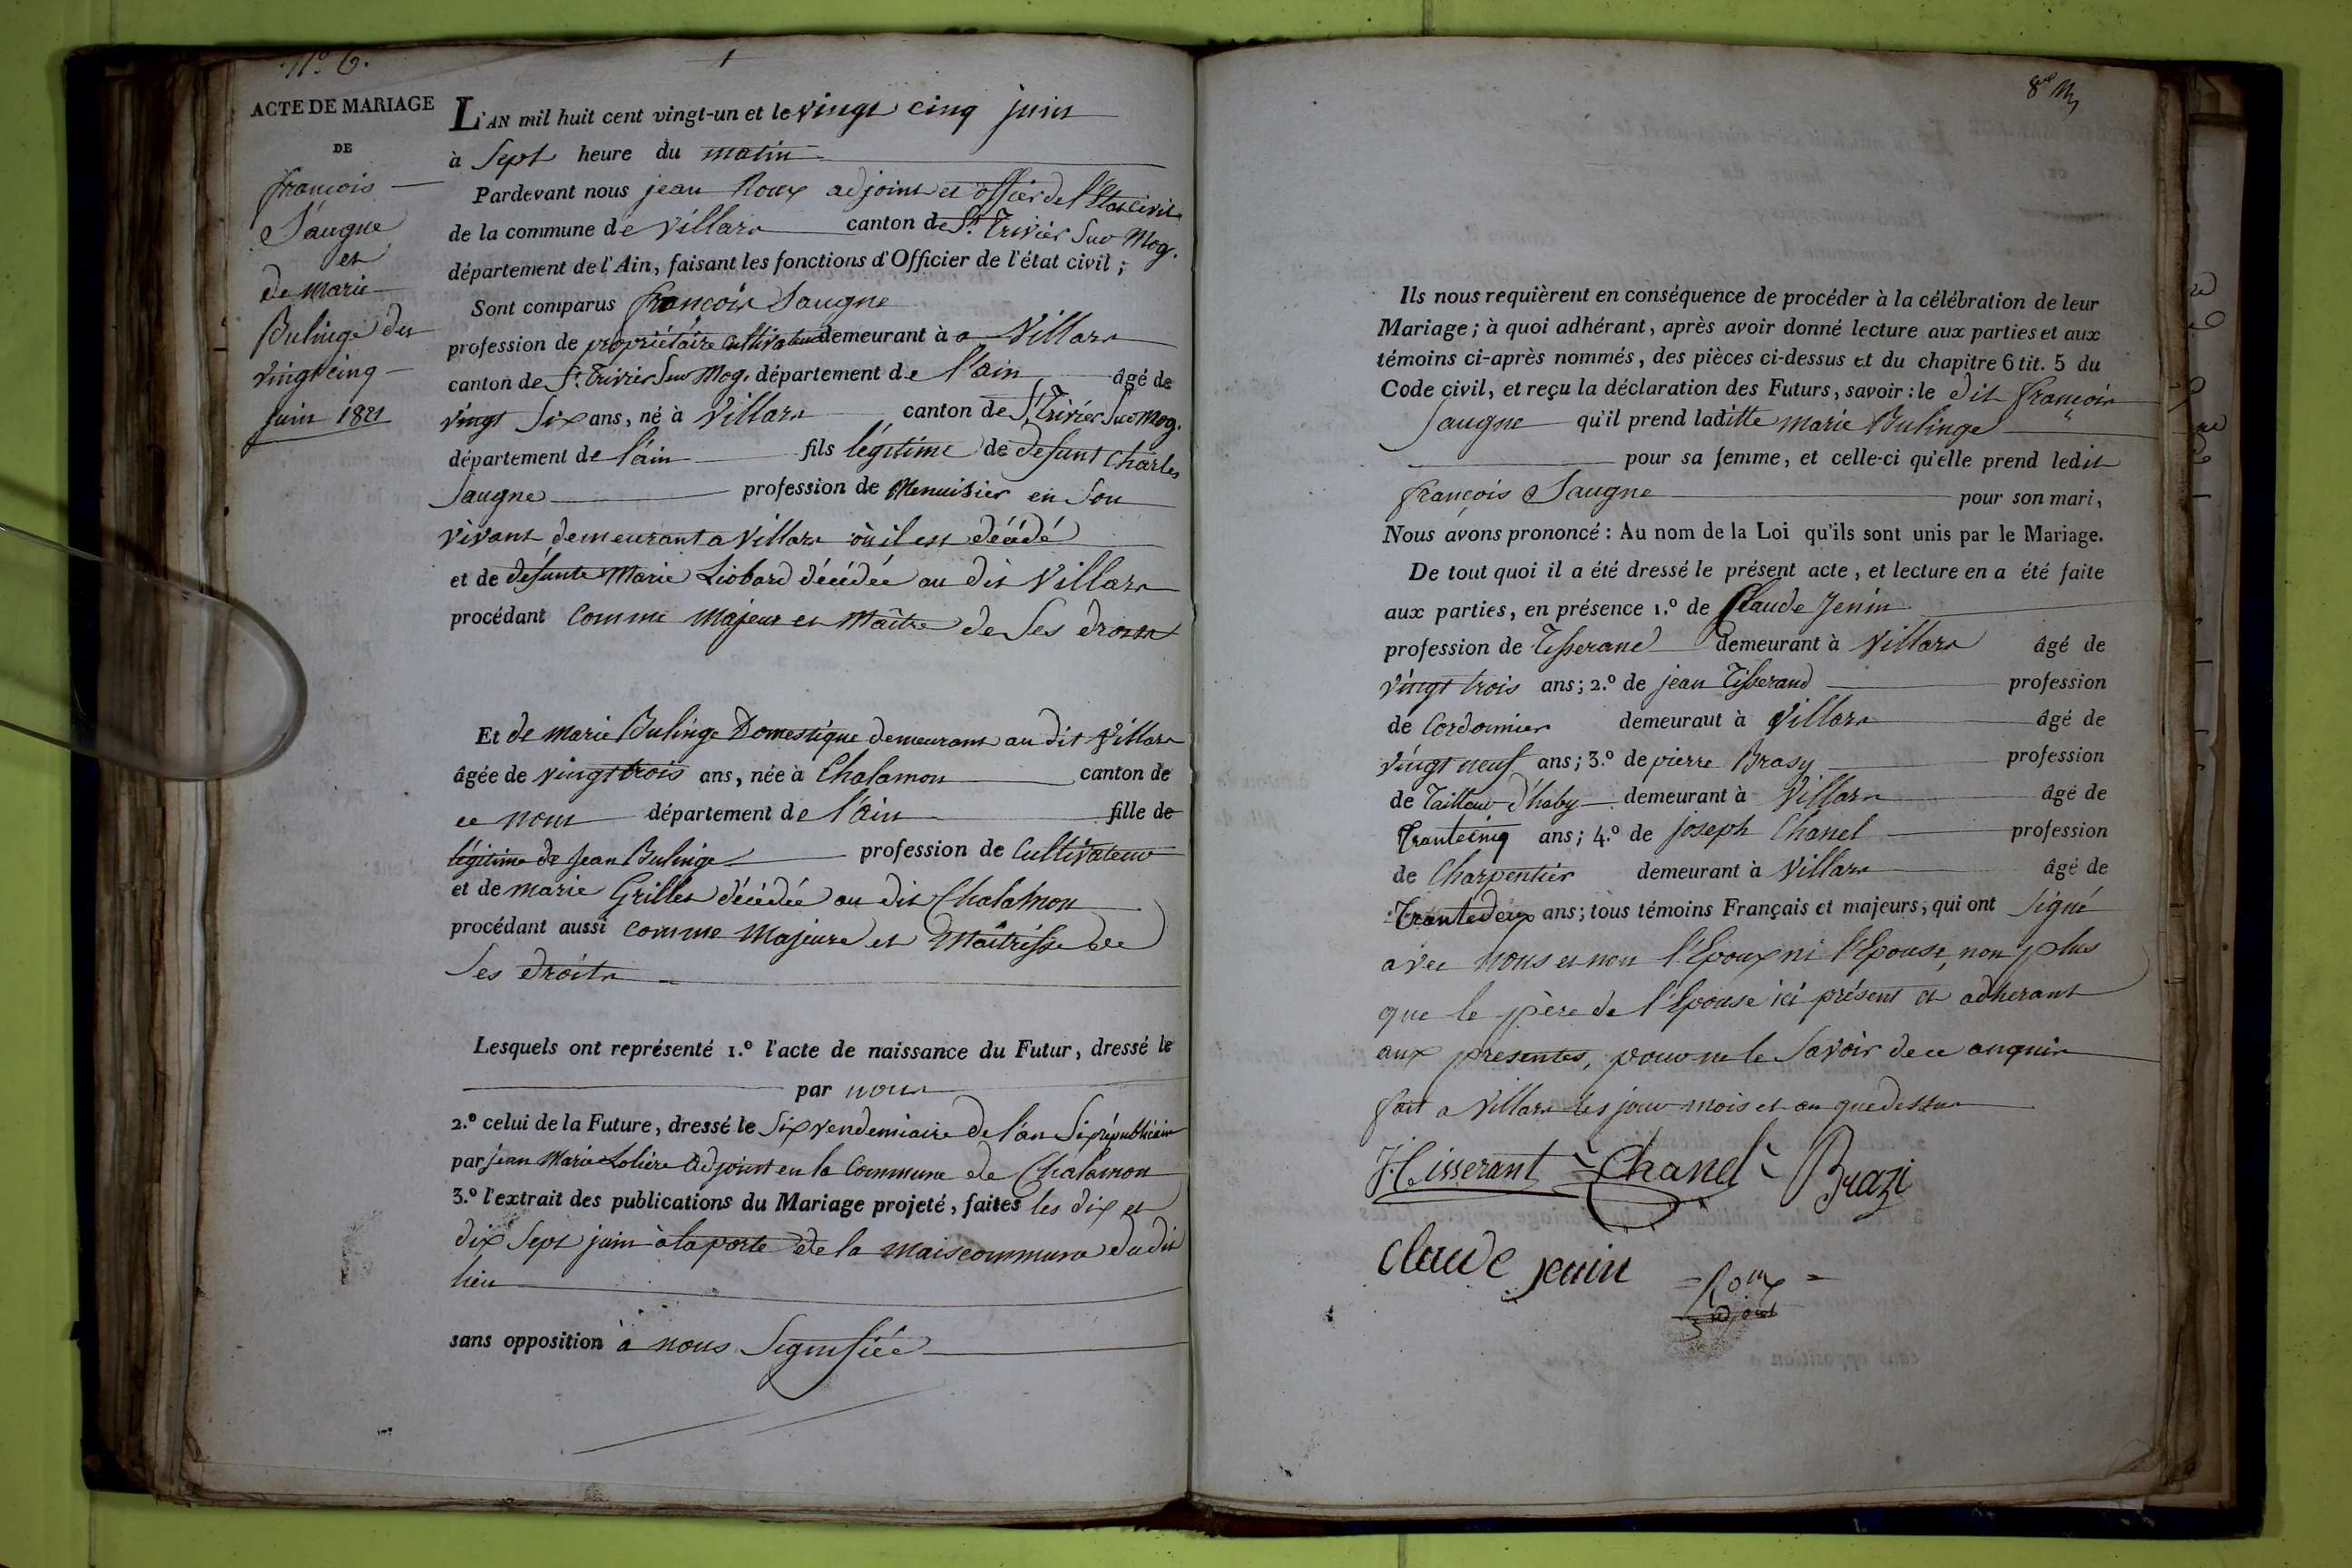 N.º 6.
1
ACTE DE MARIAGE
DE
françois
Saugne
et
de Marie
Bulinge du
vingt cinq
Juin 1821
L'AN mil huit cent vingt-un et le vingt cinq juin
à Sept heure du matin
Pardevant nous jean Roux adjoint et officier de l'Etat civil
de la commune de Villars canton de St. Trivier Sur Mog.
département de l'Ain, faisant les fonctions d'Officier de l'état civil ;
Sont comparus françois Saugne
profession de propriétaire cultivateur demeurant à a Villars
canton de St. Trivier Sur Mog. département de l'ain âgé de
vingt Six ans, né à Villars canton de St. Trivier Sur Mog.
département de l'ain fils légitime de defunt Charles
Saugne profession de Menuisier en Son
vivant demeurant a Villars où il est décédé
et de défunte Marie Liobard décédée au dit Villars
procédant comme Majeur et Maître de Ses droits
Et de Marie Bulinge Domestique demeurant au dit Villars
âgée de vingt trois ans, née à Chalamon canton de
ce nom département de l'ain fille de
légitime de Jean Bulinge profession de Cultivateur
et de marie Grillet décédée au dit Chalamon
procédant aussi comme Majeure et Maîtresse de
Ses droits
Lesquels ont représenté 1.º l'acte de naissance du Futur, dressé le
par nous
2.º celui de la Future, dressé le Six vendemiaire de l'an Six républicain
par jean Marie Loliere adjoint en la Commune de Chalamon
3.º l'extrait des publications du Mariage projeté, faites les dix et
dix Sept juin à la porte de la Maiscommune du dit
lieu
sans opposition à nous Signifiée
8
Ils nous requièrent en conséquence de procéder à la célébration de leur
Mariage ; à quoi adhérant, après avoir donné lecture aux parties et aux
témoins ci-après nommés, des pièces ci-dessus et du chapitre 6 tit. 5 du
Code civil, et reçu la déclaration des Futurs, savoir : le dit françois
Saugne qu'il prend laditte marie Bulinge
pour sa femme, et celle-ci qu'elle prend ledit
françois Saugne pour son mari,
Nous avons prononcé : Au nom de la Loi qu'ils sont unis par le Mariage.
De tout quoi il a été dressé le présent acte, et lecture en a été faite
aux parties, en présence 1.º de Claude Jenin
profession de Tisserand demeurant à Villars âgé de
vingt trois ans ; 2.º de jean Tisserand profession
de Cordonnier demeuraut à Villars âgé de
vingt neuf ans ; 3.º de pierre Brasy profession
de Tailleur d'haby demeurant à Villars âgé de
Trantcinq ans ; 4.º de Joseph Chanel profession
de Charpentier demeurant à Villars âgé de
Trantedeux ans ; tous témoins Français et majeurs, qui ont Signé
avec nous et non l'Epoux ni l'Epouse, non plus
que le père de l'Epouse ici présent et adherant
aux presentes, pour ne le Savoir de ce enquis
fait a Villars les jour mois et an que dessus
J. tisserant Chanel Brazi
Claude jenin Roux
adjoint